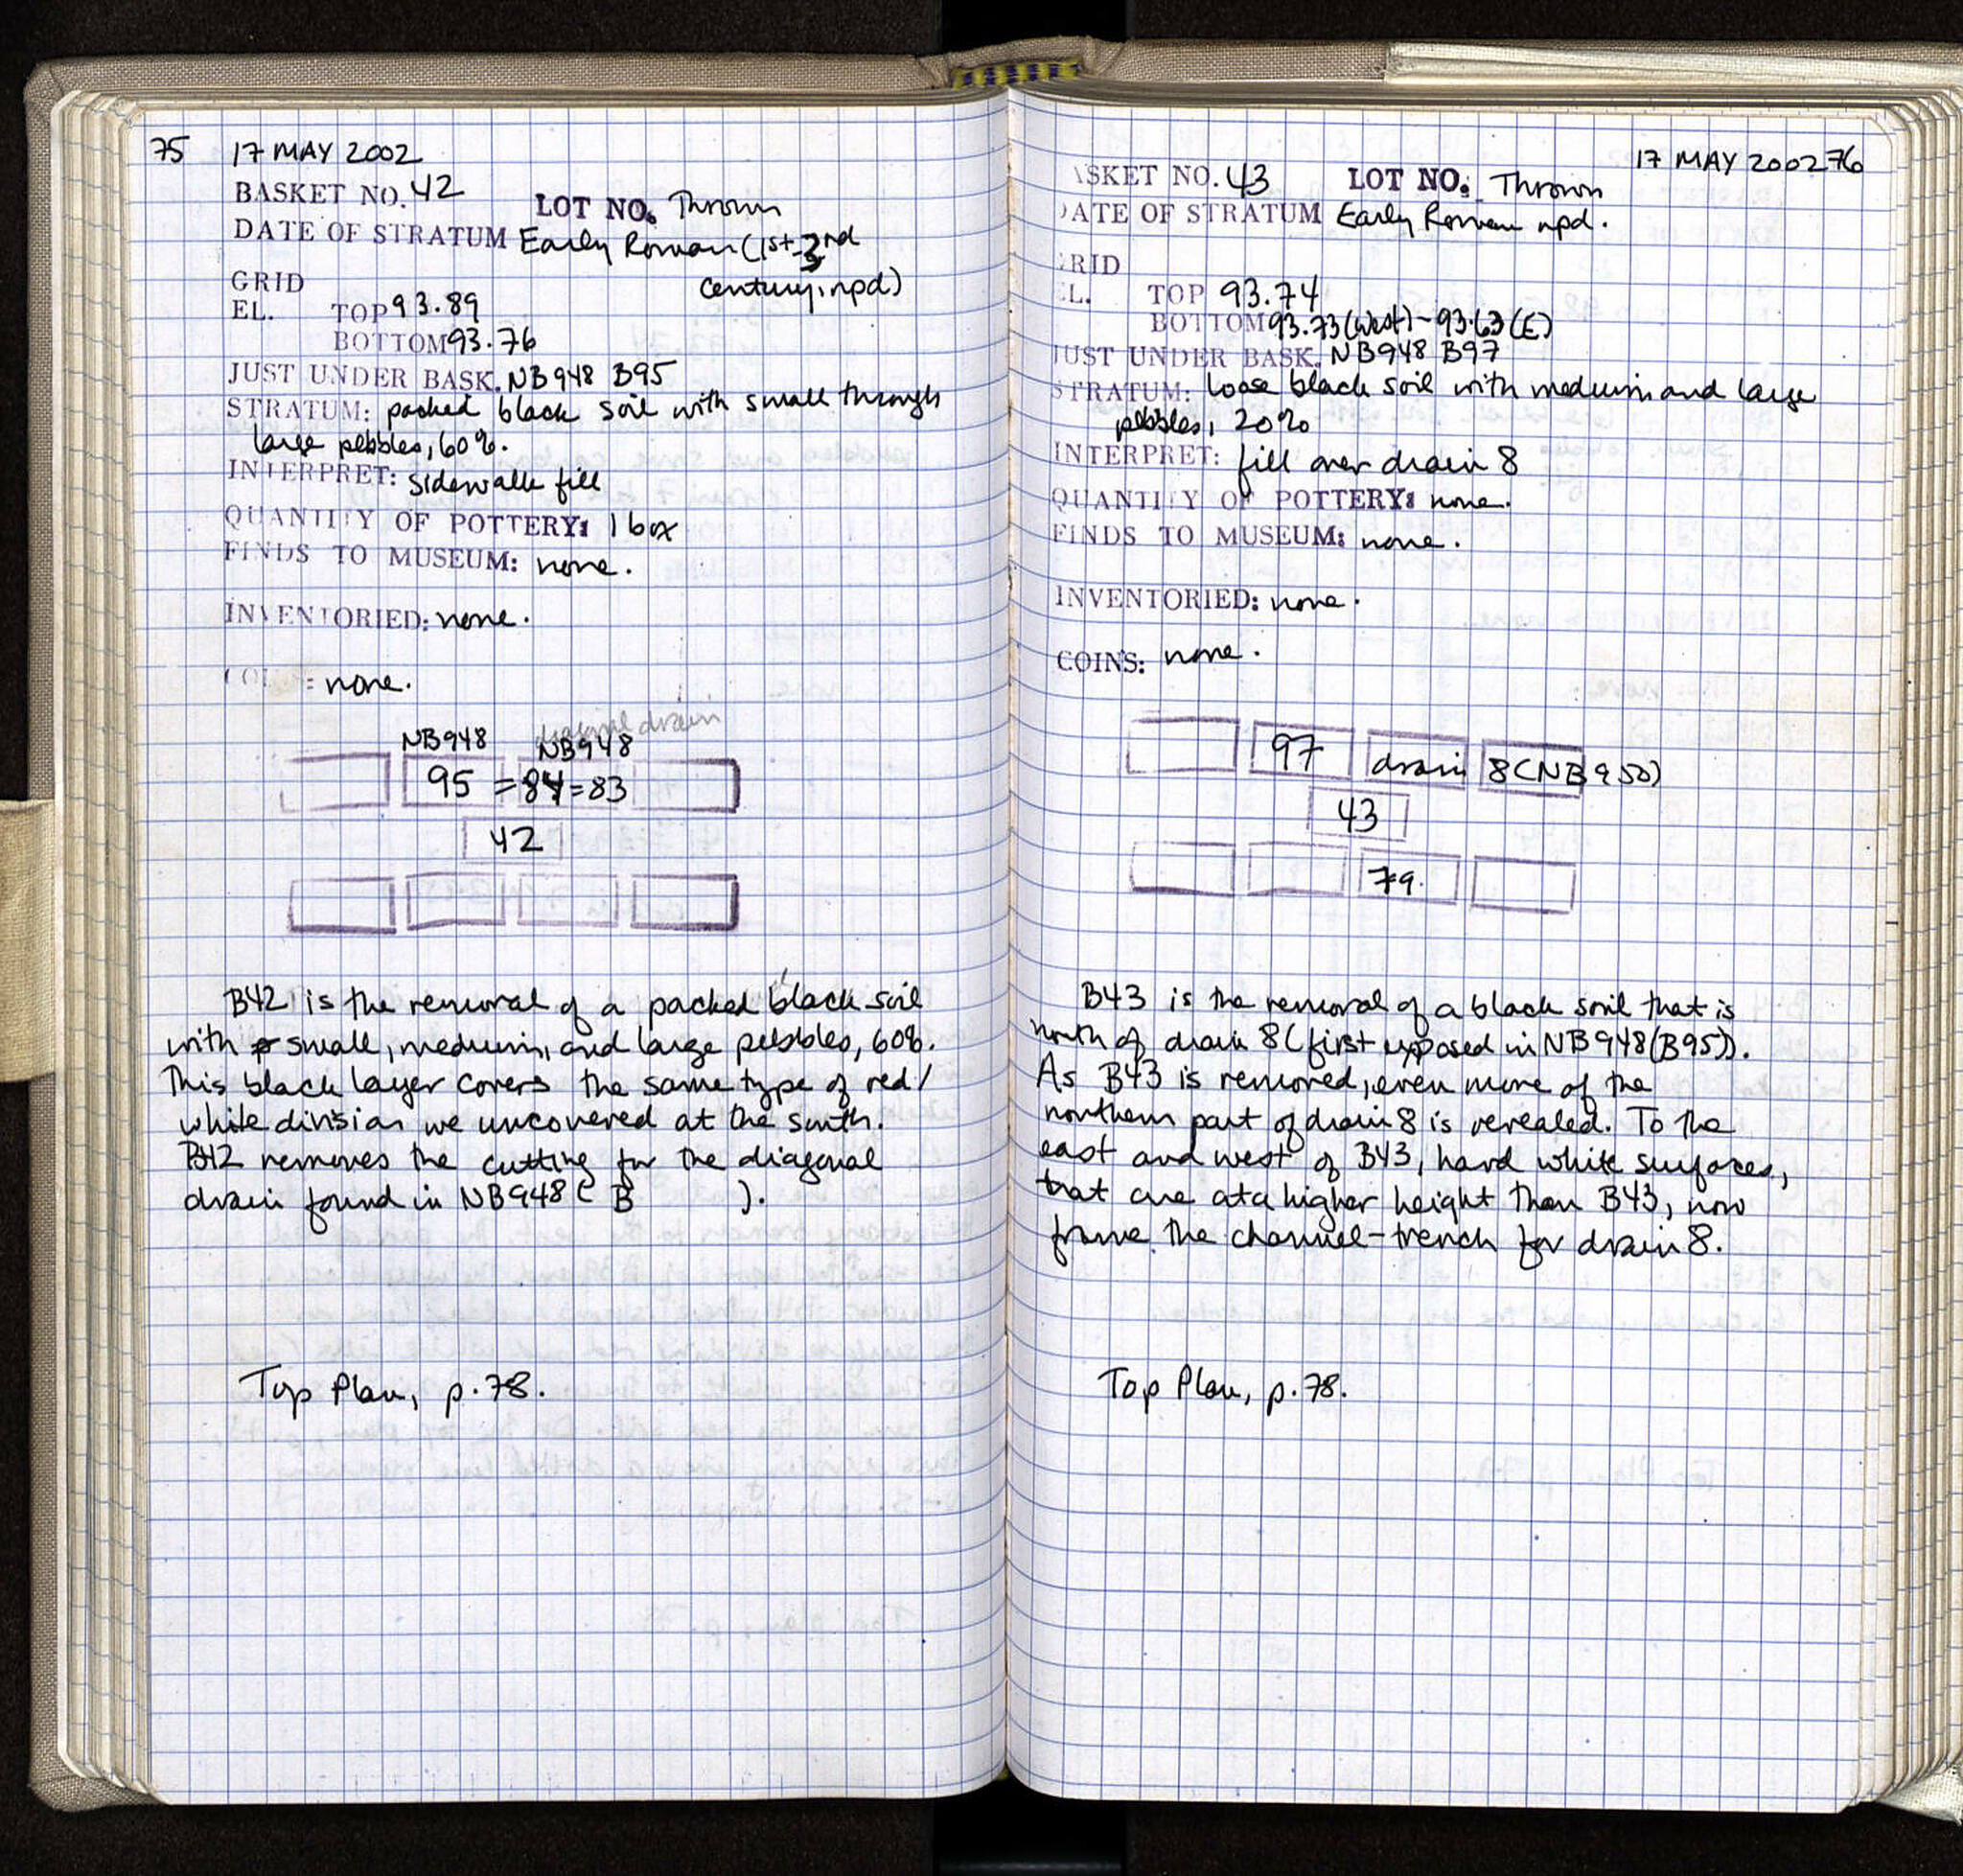 75 17 MAY 2002
BASKET NO. 42
LOT NO. Thrown
DATE OF STRATUM Early Roman (1st-3rd
century, npd)
GRID
EL. TOP 93.89
BOTTOM 93.76
JUST UNDER BASK. NB948 B95
STRATUM: packed black soil with small through
large pebbles, 60%.
INTERPRET: sidewalk fill
QUANTITY OF POTTERY: 1 box
FINDS TO MUSEUM: none.
INVENTORIED: none.
none.
diagonal drain
NB948 NB948
95 = 84 = 83
42
B42 is the removal of a packed black soil
with small, medium, and large pebbles, 60%.
This black layer covers the same type of red/
white division we uncovered at the south.
B42 removes the cutting for the diagonal
drain found in NB948 ( B ).
Top Plan, p.78.
17 MAY 2002 76
ASKET NO. 43 LOT NO. Thrown
DATE OF STRATUM Early Roman npd.
GRID
EL. TOP 93.74
BOTTOM 93.73 (West) - 93.63 (E)
JUST UNDER BASK. NB948 B97
STRATUM: loose black soil with medium and large
pebbles, 20%
INTERPRET: fill over drain 8
QUANTITY OF POTTERY: none.
FINDS TO MUSEUM: none.
INVENTORIED: none.
COINS: none.
97 drain 8 (NB950)
43
79.
B43 is the removal of a black soil that is
north of drain 8 (first exposed in NB948 (B95)).
As B43 is removed, even more of the
northern part of drain 8 is revealed. To the
east and west of B43, hard white surfaces,
that are at a higher height than B43, now
frame the channel-trench for drain 8.
Top Plan, p.78.